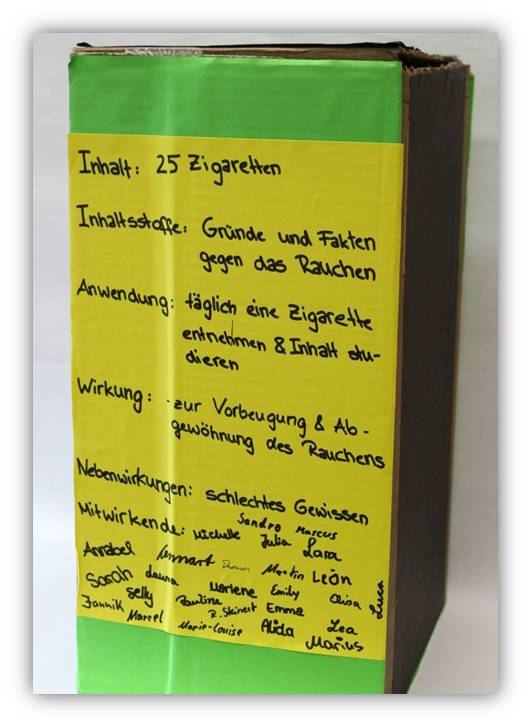 Inhalt: 25 Zigaretten
Inhaltsstoffe: Gründe und Fakten
gegen das Rauchen
Anwendung: täglich eine Zigarette
entnehmen & Inhalt stu-
dieren
Wirkung: -zur Vorbeugung & Ab-
gewöhnung des Rauchens
Nebenwirkungen: schlechtes Gewissen
Sandro Marcus
Mitwirkende: Michelle Julia Lara
Annabel Lennart Thomas Martin Leòn
Sarah Laura Marlene Emily Elisa Luca
Selly Pauline Emma
Jannik R. Steinert Lea
Marcel Marie-Louise Alida Marius